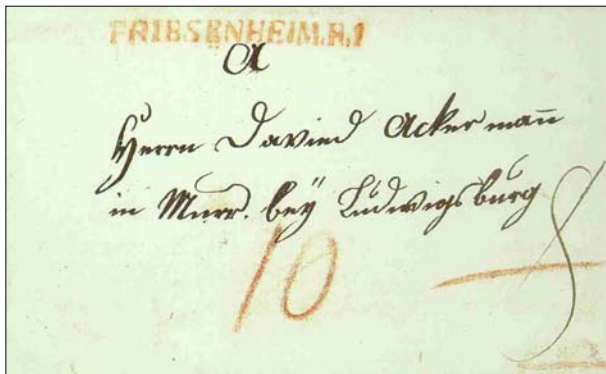 FRIESENHEIM.R.1
A
Herrn Davied Ackermañ
in Murr. beÿ Ludwigsburg
10